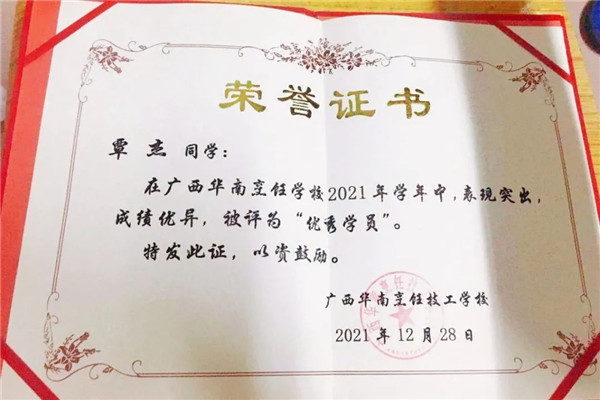 荣誉证书
覃杰 同学：
在广西华南烹饪学校2021年学年中，表现突出，
成绩优异，被评为“优秀学员”。
特发此证，以资鼓励。
广西华南烹饪技工学校
2021年12月28日